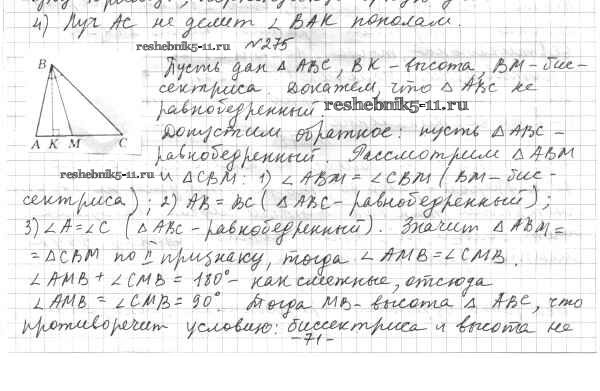 4) Луч AC не делит ∠ BAK пополам.
reshebnik5-11.ru
№275
B
A K M C
Пусть дан △ ABC, BK - высота, BM - бис-
сектриса. Докажем, что △ ABC не
равнобедренный.
reshebnik5-11.ru
Допустим обратное: пусть △ ABC -
равнобедренный. Рассмотрим △ ABM
reshebnik5-11.ru
и △CBM: 1) ∠ ABM = ∠ CBM (BM - бис-
сектриса); 2) AB = BC (△ ABC - равнобедренный);
3) ∠A = ∠C (△ ABC - равнобедренный). Значит △ ABM =
= △CBM по II признаку, тогда ∠ AMB = ∠ CMB.
∠ AMB + ∠ CMB = 180° - как смежные, отсюда
∠ AMB = ∠ CMB = 90°. Тогда MB - высота △ ABC, что
противоречит условию: биссектриса и высота не
-71-